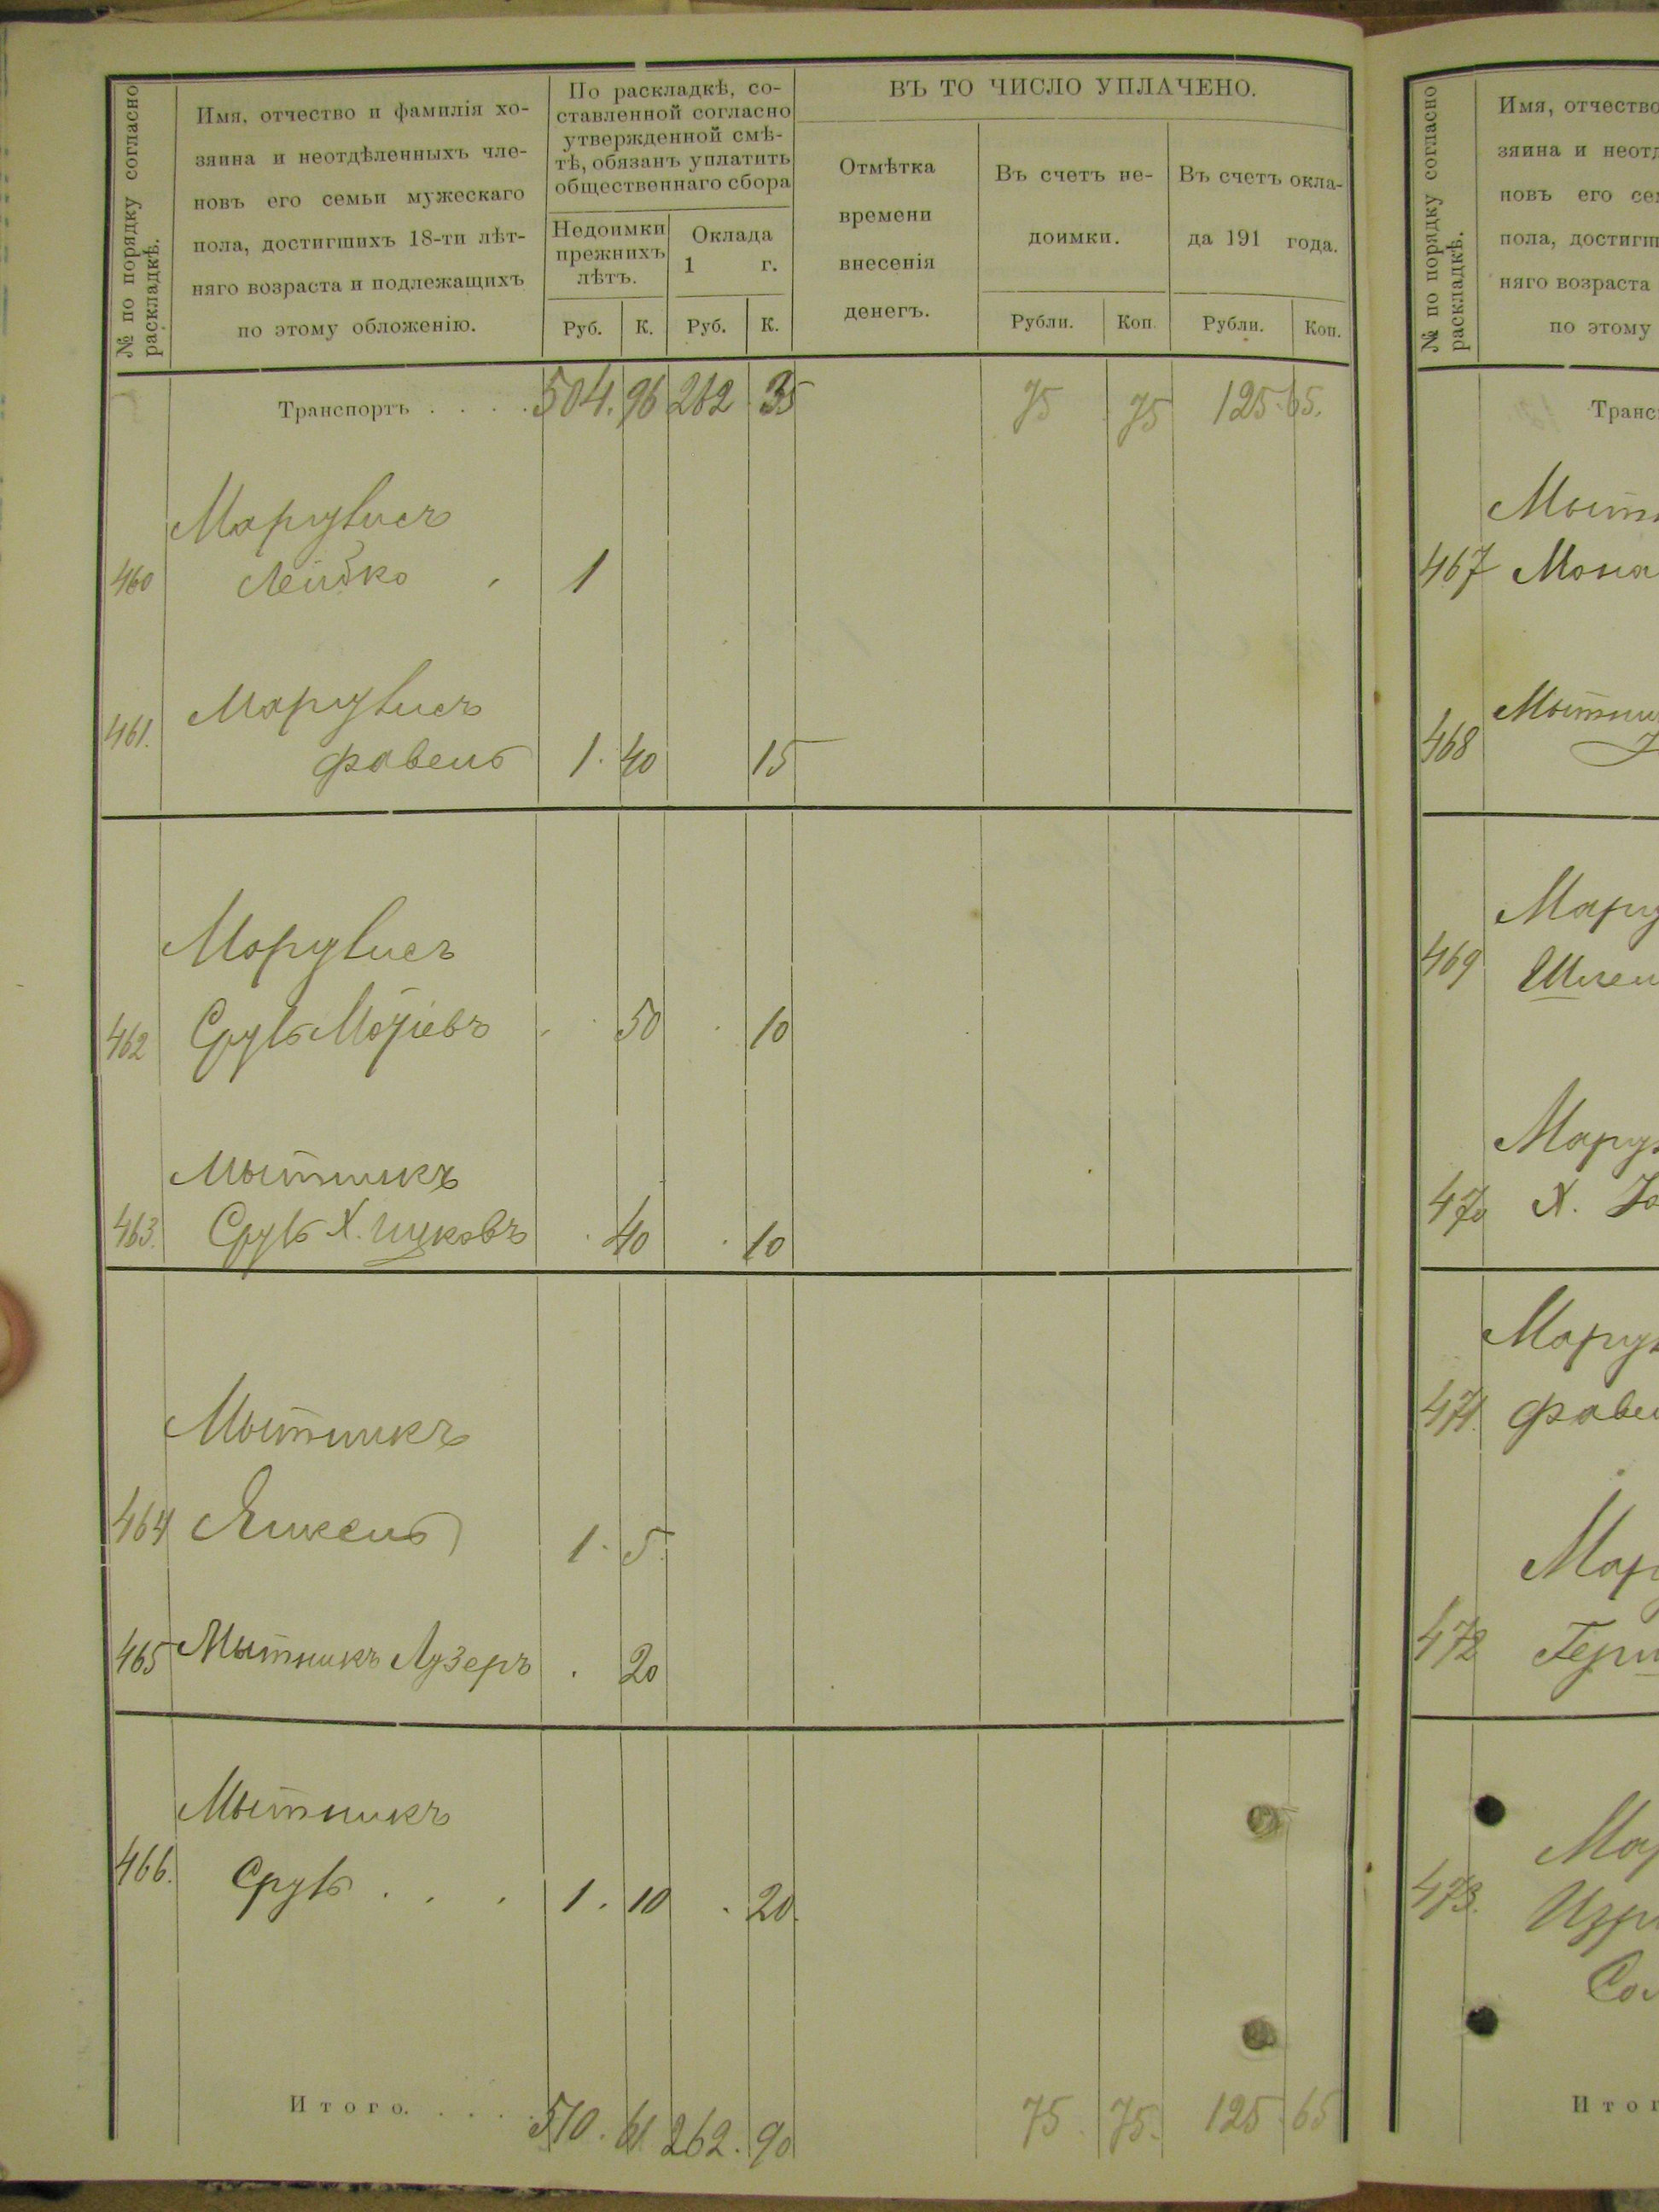 № по порядку согласно
раскладкѣ.
Имя, отчество и фамилія хо-
зяина и неотдѣленныхъ чле-
новъ его семьи мужескаго
пола, достигшихъ 18-ти лѣт-
няго возраста и подлежащихъ
по этому обложенію.
По раскладкѣ, со-
ставленной согласно
утвержденной смѣ-
тѣ, обязанъ уплатить
общественнаго сбора
Недоимки
прежнихъ
лѣтъ.
Оклада
1 г.
Руб. К. Руб. К.
ВЪ ТО ЧИСЛО УПЛАЧЕНО.
Отмѣтка
времени
внесенія
денегъ.
Въ счетъ не-
доимки.
Рубли. Коп.
Въ счетъ окла-
да 191 года.
Рубли. Коп.
Транспортъ . . . . 504. 96 262 35 75 75 125. 65.
460 Лейбко 1
461.
фавель 1. 40 15
462 Сруль 50 10
Мытникъ
463. Сруль Х. Ицковъ 40 10
Мытникъ
464 Янкель 1. 5.
465 Мытникъ Лузеръ . 20
Мытникъ
466. Сруль . . . 1. 10 . 20.
Итого. . . . . 510. 61 262. 90 75. 75. 125. 65
№ по порядку согласно
раскладкѣ.
Имя, отчество
зяина и неотд
новъ его сем
пола, достигш
няго возраста
по этому
Транс
467
468
469
470 Х.
471. фавел
472 Герш
473.
Итог